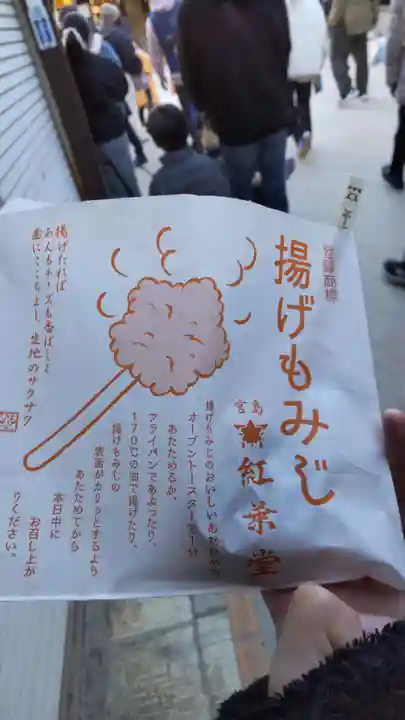 登録商標
揚げもみじ
宮島
紅葉堂
揚げもみじのおいしいあたためかた
オーブントースターで1分
あたためるか、
フライパンであぶったり、
170℃の油で揚げたり、
揚げもみじの
表面がカリッとするよう
あたためてから
本日中に
お召し上が
りください。
揚げたれば
あんもチーズも香ばしく
生地のサクサク